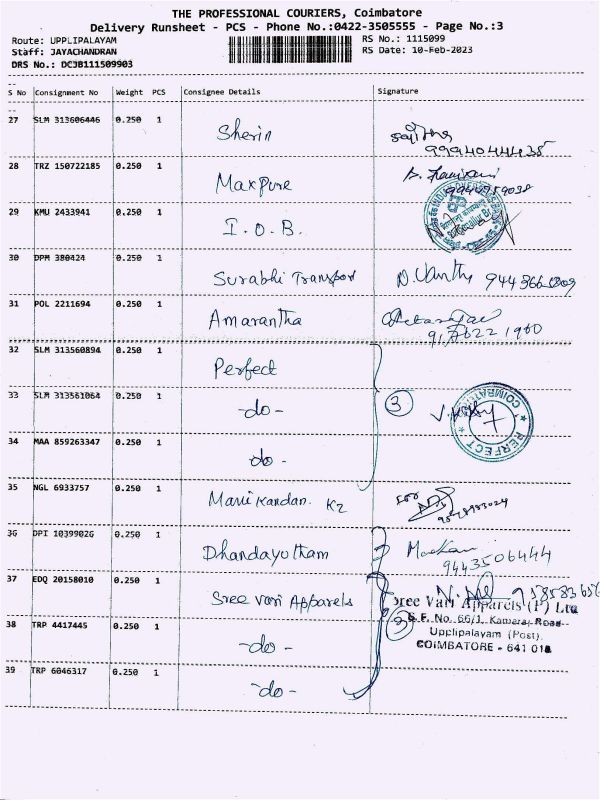 THE PROFESSIONAL COURIERS, Coimbatore
Delivery Runsheet - PCS - Phone No.:0422-3505555 - Page No.:3
Route: UPPLIPALAYAM
RS No.: 1115099
Staff: JAYACHANDRAN
RS Date: 10-Feb-2023
DRS No.: DCJB111509903
S No Consignment No Weight PCS Consignee Details Signature
27 SLM 313606446 0.250 1 Sherin
99940444435
28 TRZ 150722185 0.250 1 Maxpure
29 KMU 2433941 0.250 1 I.O.B.
30 DPM 380424 0.250 1 Surabhi Transport
31 POL 2211694 0.250 1 Amarantha
32 SLM 313560894 0.250 1 Perfect
33 SLM 313561064 0.250 1 -do- 3
COIMBATORE
PERFECT
34 MAA 859263347 0.250 1 -do-
35 NGL 6933757 0.250 1 Manikandan. K2
36 DPI 10399026 0.250 1 Dhandayutham
9443506444
37 EDQ 20158010 0.250 1 Sree Vari Apparels
Sree Vari Apparels (P) Ltd
S.F. No. 66/1, Kamaraj Road
38 TRP 4417445 0.250 1 -do- 3
Upplipalayam (Post).
COIMBATORE - 641 015
39 TRP 6046317 0.250 1 -do-